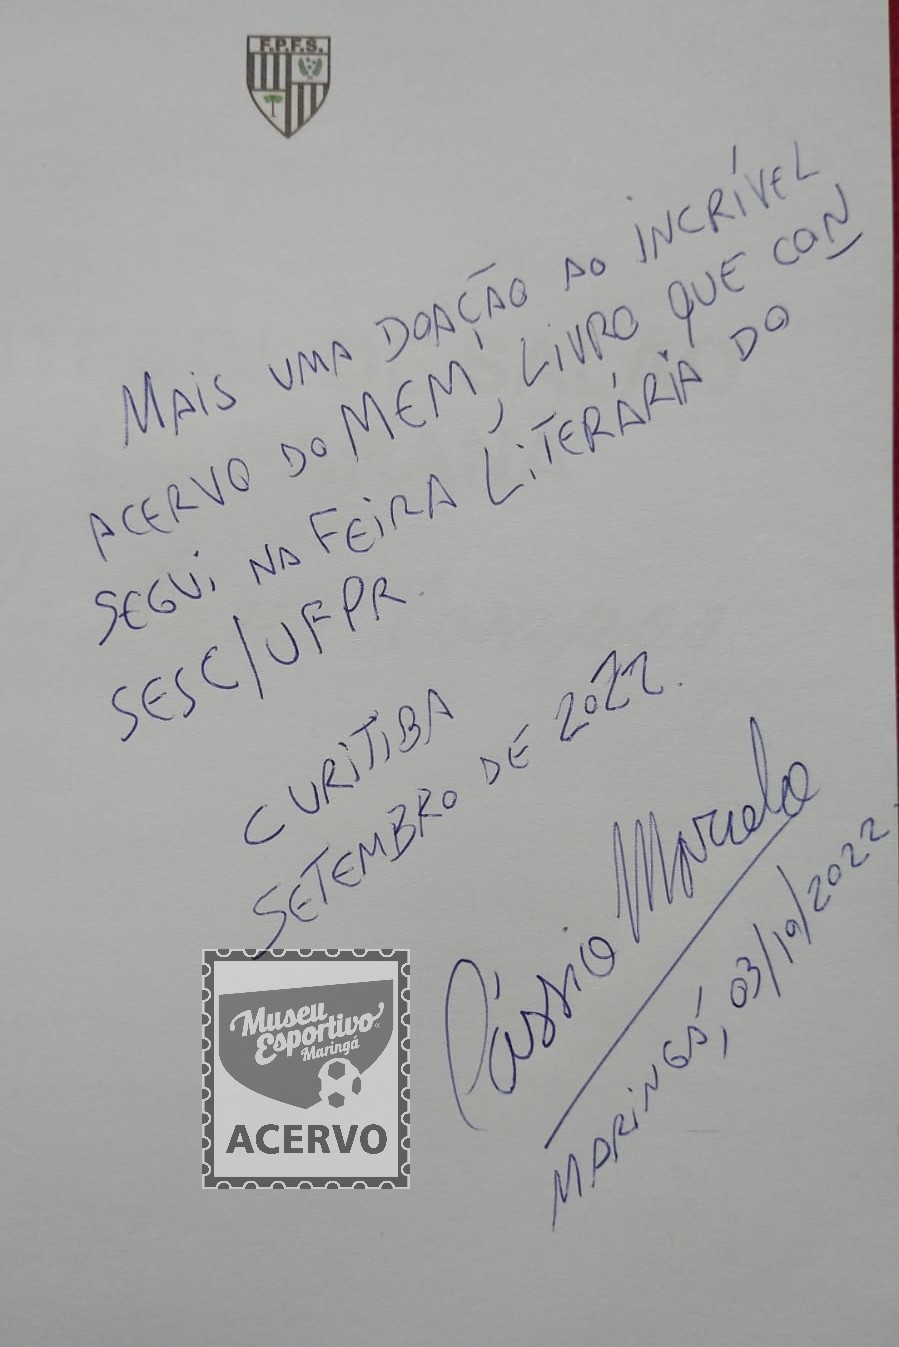 F.P.F.S.
MAIS UMA DOAÇÃO AO INCRÍVEL
ACERVO DO MEM, LIVRO QUE CON
SEGUI NA FEIRA LITERÁRIA DO
SESC/UFPR.
CURITIBA
SETEMBRO DE 2022.
Cássio Marcelo
MARINGÁ, 03/10/2022
Museu
Esportivo
Maringá
ACERVO